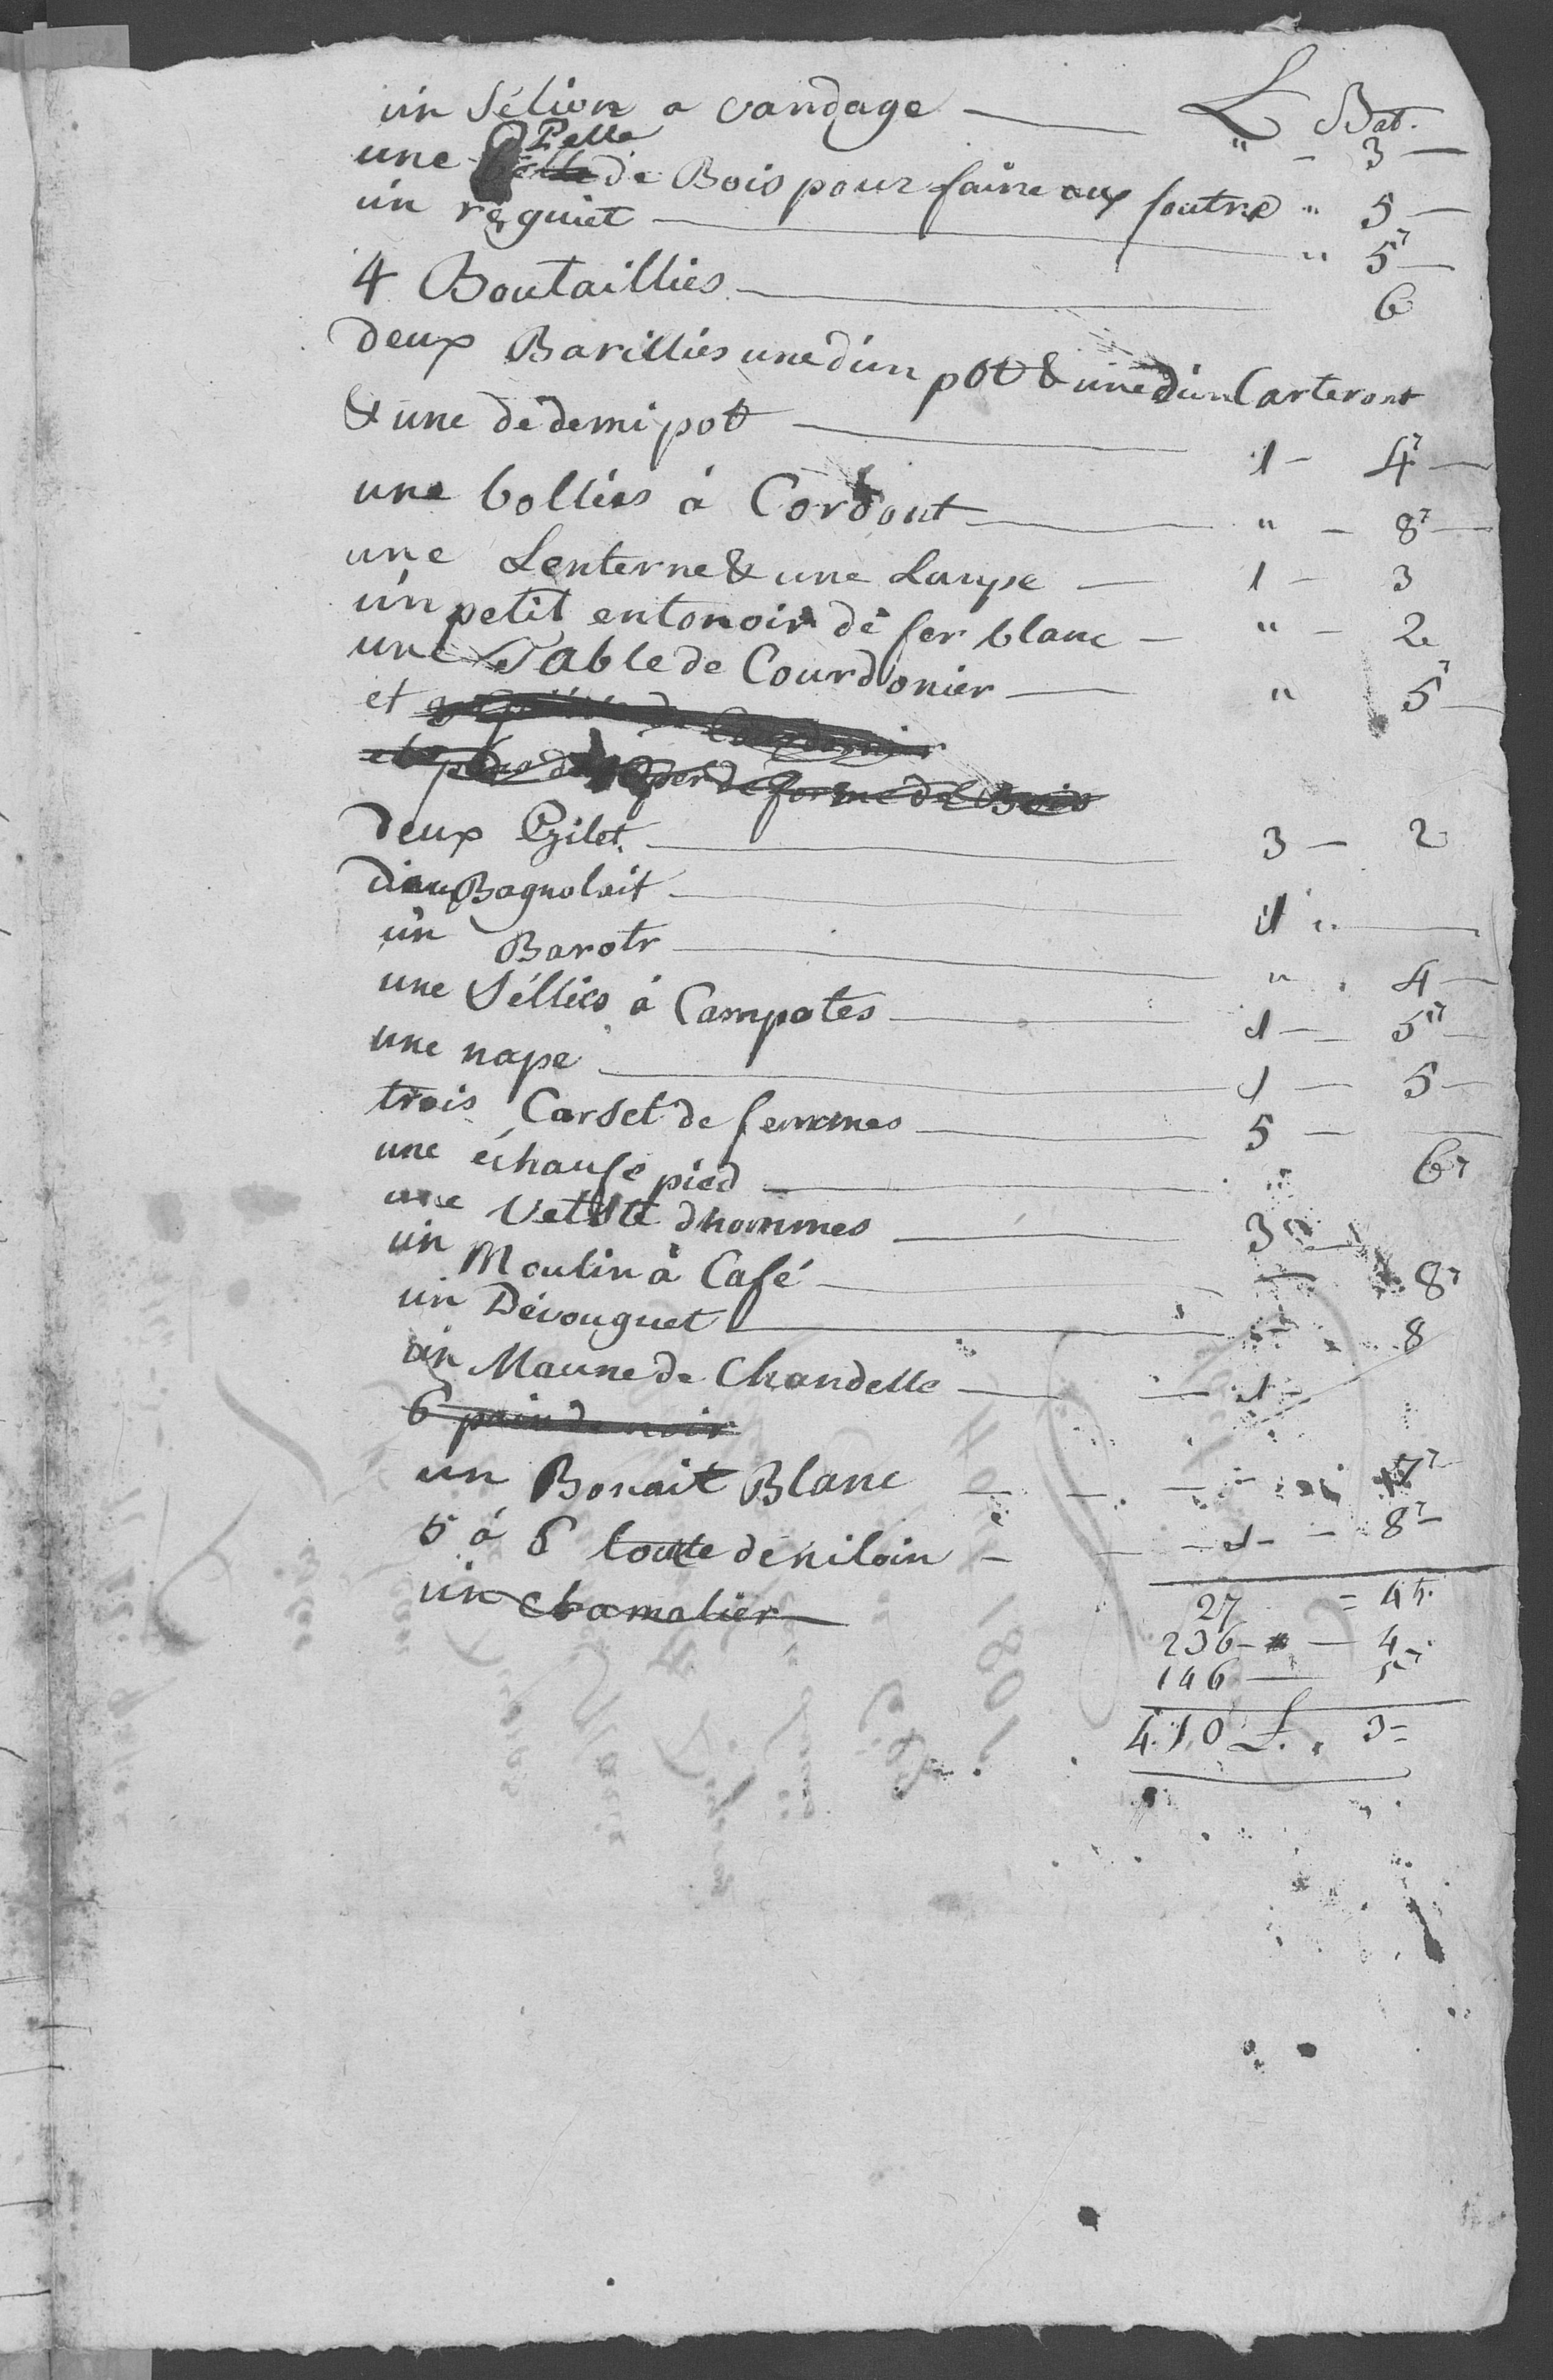 L Bat.
un sélion a vandage " - 3 —
une Pelle de Bois pour faire aux foutre " 5 —
un réguiet " 5 —
4 Boutailliés 6
deux Barilliés une d'un pot & une d'un Carteront
& une de demi pot 1 - 4 —
une bolliés à Cordont " - 8 —
une Lenterne & une Lanpe 1 - 3
un petit entonoir de fer blanc " - 2
une Table de Courdonier " 5 —
et
et forme de Bois
deux Gilet 3 - 2
Bagnolait 1 "
un Barotr " 4 —
une Séllies à Campotes 1 - 5 —
une nape 1 - 5 —
trois Corset de femmes 5 —
une échaufe pied " 6
une Vetste d'hommes 3 "
un Moulin à Café — 8
un Dévouguet 8
un Maune de Chandelle 1 -
6 pain de noir
un Bonait Blanc 7
5 à 6 toute de niloin 1 - 8 —
un chamalier
27 = 4
236 - 4
146 — 5
410 L. 3 =
1801